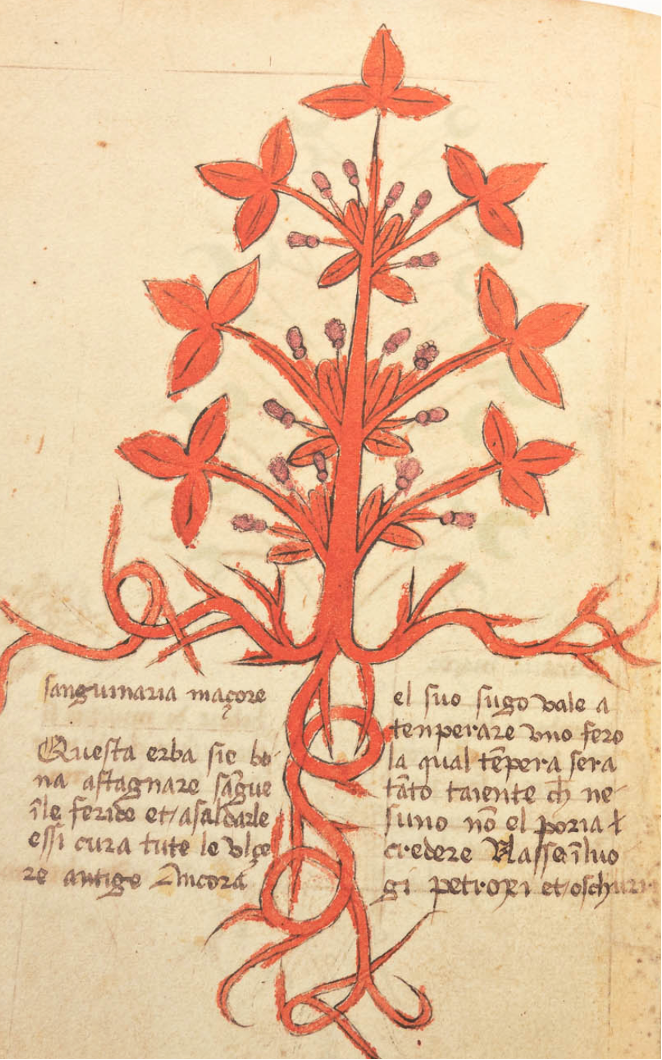 sanguinaria maçore
Questa erba sie bo-
na astagnare sãgue
ĩ le feride et asaldarle
essi cura tute le vlçe
re antige Ancora
el suo sugo vale a
tenperare vno fero
la qual tẽpera sera
tãto taiente ch ne
suno nõ el poria
credere Nasse ĩ luo
gi petroxi et oschuri